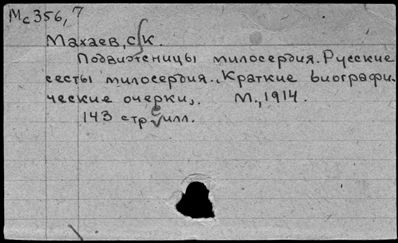 Мс356,7
Махаев, С.К.
Подвижницы милосердия. Русские
сестры милосердия. Краткие биографи-
ческие очерки. М., 1914.
143 стр. с илл.